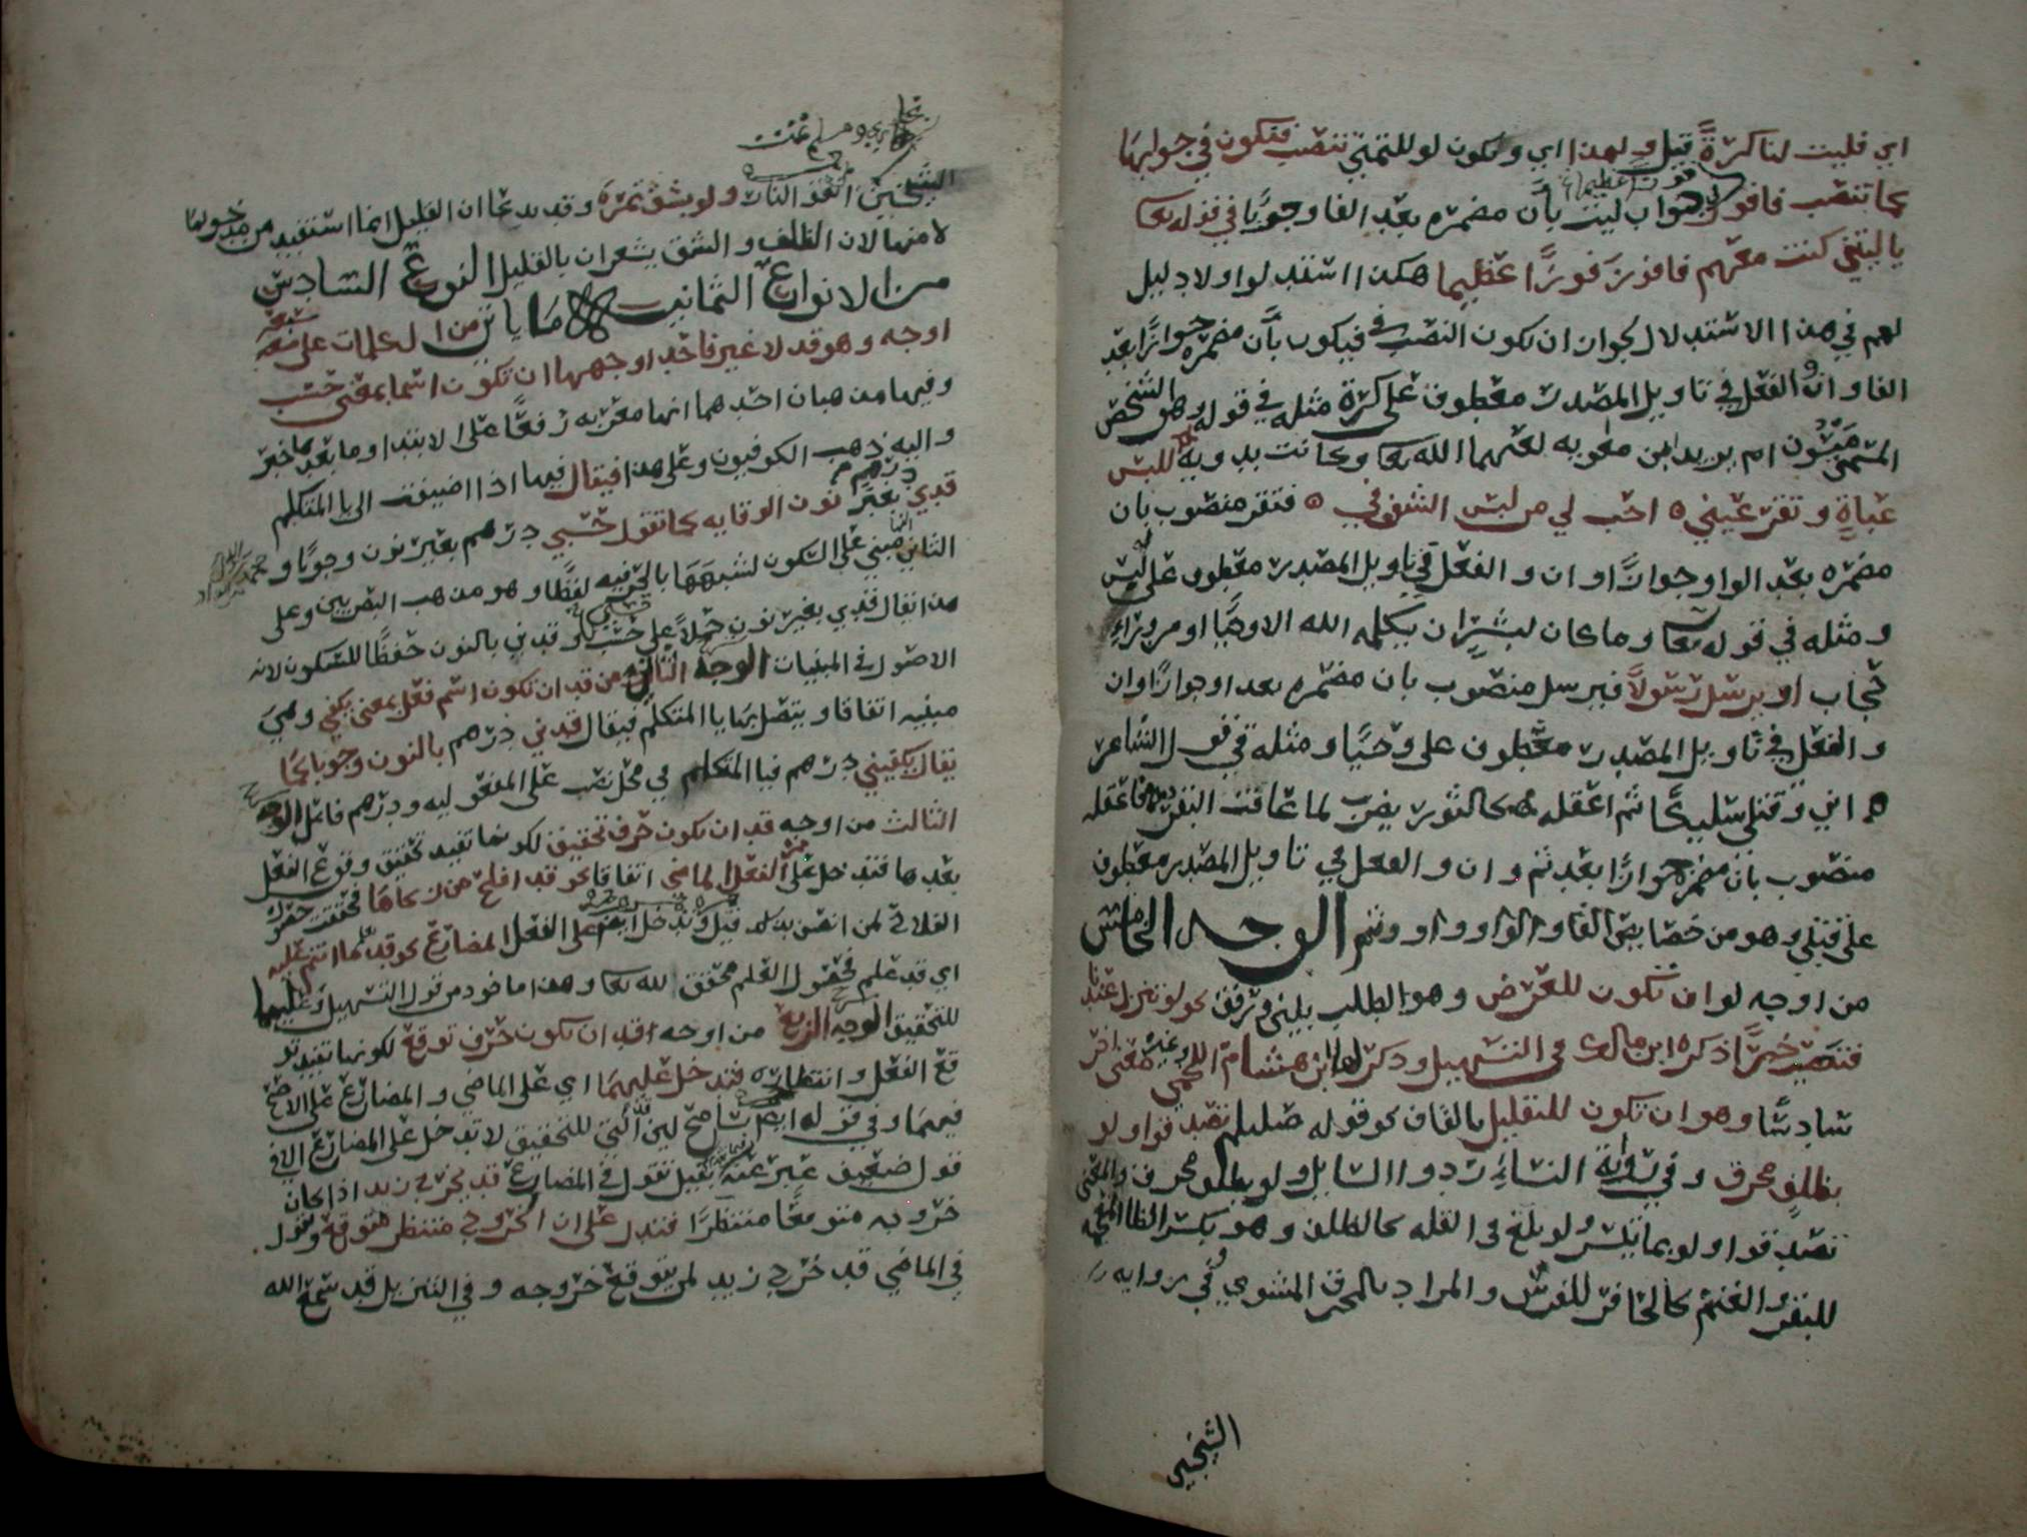 اي فليت لنا كرة قيل ولهذا اي وتكون لو للتمني تنصب فتكون في جوابها
كما تنصب فافوز في جواب ليت بأن مضمره بعد الفا وجوبا في قوله تعا
يا ليتني كنت معهم فافوز فوزا عظيما هكذا استدلوا ولا دليل
لهم في هذا الاستدلال لجواز ان يكون النصب في فيكون بأن مضمره جوازا بعد
الفا وان والفعل في تاويل المصدر معطوف على كرة مثله في قوله وهو الشخص
المسمى ميسون ام يزيد ابن معويه لعنهما الله تعا وكانت بدويه للبس
عباة وتقر عيني ه احب لي من لبس الشفوف ه فتقر منصوب بان
مضمره بعد الواو جوازا وان والفعل في تاويل المصدر معطوف على لبس
ومثله في قوله تعا وما كان لبشر ان يكلمه الله الا وحيا او من وراء
حجاب او يرسل رسولا فيرسل منصوب بان مضمره بعد او جوازا وان
والفعل في تاويل المصدر معطوف على وحيا ومثله في قول الشاعر
ه اني وقتلي سليكا ثم اعقله ه كالثور يضرب لما عافت البقر ه فاعقله
منصوب بان مضمره جوازا بعد ثم وان والفعل في تاويل المصدر معطوف
على قتلي وهو من خصايص الفا والواو واو وثم الوجه الخامس
من اوجه لو ان تكون للعرض وهو الطلب بلين وترفق نحو لو تنزل عندنا
فتصيب خيرا ذكره ابن مالك في التسهيل وذكر لها ابن هشام اللخمي وغيره معنى اخر
سادسا وهو ان تكون للتقليل بالقاف نحو قوله صلىلم تصدقوا ولو
بظلف محرق وفي رواية النساءي ردوا السايل ولو بظلف محرق والمعنى
تصدقوا ولو بما تيسر ولو بلغ في القله كالظلف وهو بكسر الظا المعجمه
للبقر والغنم كالحافر للفرس والمراد بالمحرق المشوي وفي روايه
الشيخين
بخاري ومسلم تمت
الشيخين اتقو النار ولو بشق تمرة وقد يدعا ان القليل انما استفيد من مدخولها
لا منها لان الظلف والشق يشعران بالقليل النوع السادس
من الانواع الثمانيه ما ياتي من الكلمات على سبعه
اوجه وهو قد لا غير فاحد اوجهها ان تكون اسما بمعنى حسب
وفيها مذهبان احدهما انها معربه رفعا على الابتدا وما بعدها خبر
واليه ذهب الكوفيون وعلى هذا فيقال فيها اذا اضيفت الى يا المتكلم
قدي درهم بغير نون الوقايه كما تقول حسبي درهم بغير نون وجوبا و
الثاني انها مبني على السكون لشبهها بالحرفيه لفظا وهو مذهب البصريين وعلى
هذا يقال قدي بغير نون حملا على حسبي وقدني بالنون حفظا للسكون لانه
الاصول في المبنيات الوجه الثاني من قد ان تكون اسم فعل بمعنى يكفي وهي
مبنيه اتفاقا ويتصل بها يا المتكلم فيقال قدني درهم بالنون وجوبا كما
يقال يكفيني درهم فيا المتكلم في محل نصب على المفعوليه ودرهم فاعل الوجه
الثالث من اوجه قد ان تكون حرف تحقيق لكونها تفيد تحقيق وقوع الفعل
بعدها فتدخل على الفعل الماضي اتفاقا نحو قد افلح من زكاها فحققت حصول
الفلاح لمن اتصف بذلك قيل وتدخل ايضا على الفعل المضارع نحو قد يعلم ما انتم عليه
اي قد علم فحصول العلم محقق لله تعا وهذا ماخوذ من قول التسهيل وعليهما
للتحقيق الوجه الرابع من اوجه قد ان تكون حرف توقع لكونها تفيد تو
قع الفعل وانتظاره فتدخل عليهما اي على الماضي والمضارع على الاصح
فيهما وفي قوله ايضا تسامح لين التي للتحقيق لا تدخل على المضارع الا في
قول ضعيف عبر عنه بقيل تقول في المضارع قد يخرج زيد اذا كان
خروجه متوقعا منتظرا فتدل على ان الخروج منتظر متوقع وتقول
في الماضي قد خرج زيد لمن يتوقع خروجه وفي التنزيل قد سمع الله